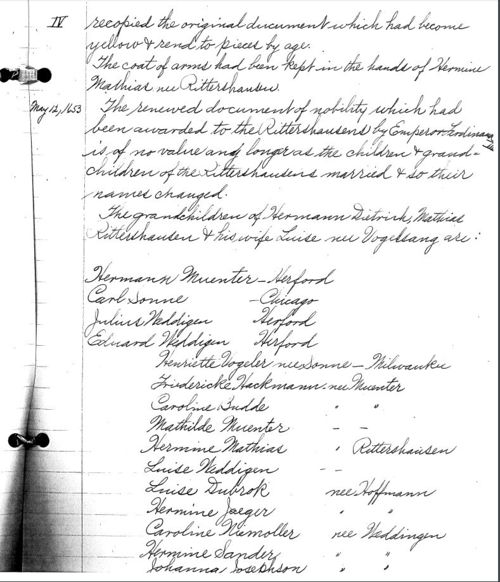 IV recopied the original document which had become
yellow & rend to pieces by age.
The coat of arms had been kept in the hands of Hermine
Mathias nee Rittershausen.
May 12, 1653 The renewed document of nobility which had
been awarded to the Rittershausens by Emperor Ferdinand
is of no value any longer as the children & grand-
children of the Rittershausens married & so their
names changed.
The grandchildren of Hermann Dietrich, Mathias
Rittershausen & his wife Luise nee Vogelsang are:
Hermann Muenter – Herford
Carl Sonne – Chicago
Julius Weddigen Herford
Eduard Weddigen Herford
Henriette Vogeler nee Sonne – Milwaukee
Fridericke Hackmann nee Muenter
Caroline Budde " "
Mathilde Muenter – –
Hermine Mathias " Rittershausen
Luise Weddigen – –
Luise Dubrok nee Hoffmann
Hermine Jaeger " "
Caroline Niemoller nee Weddingen
Hermine Sander " "
Johanna Josephson " "